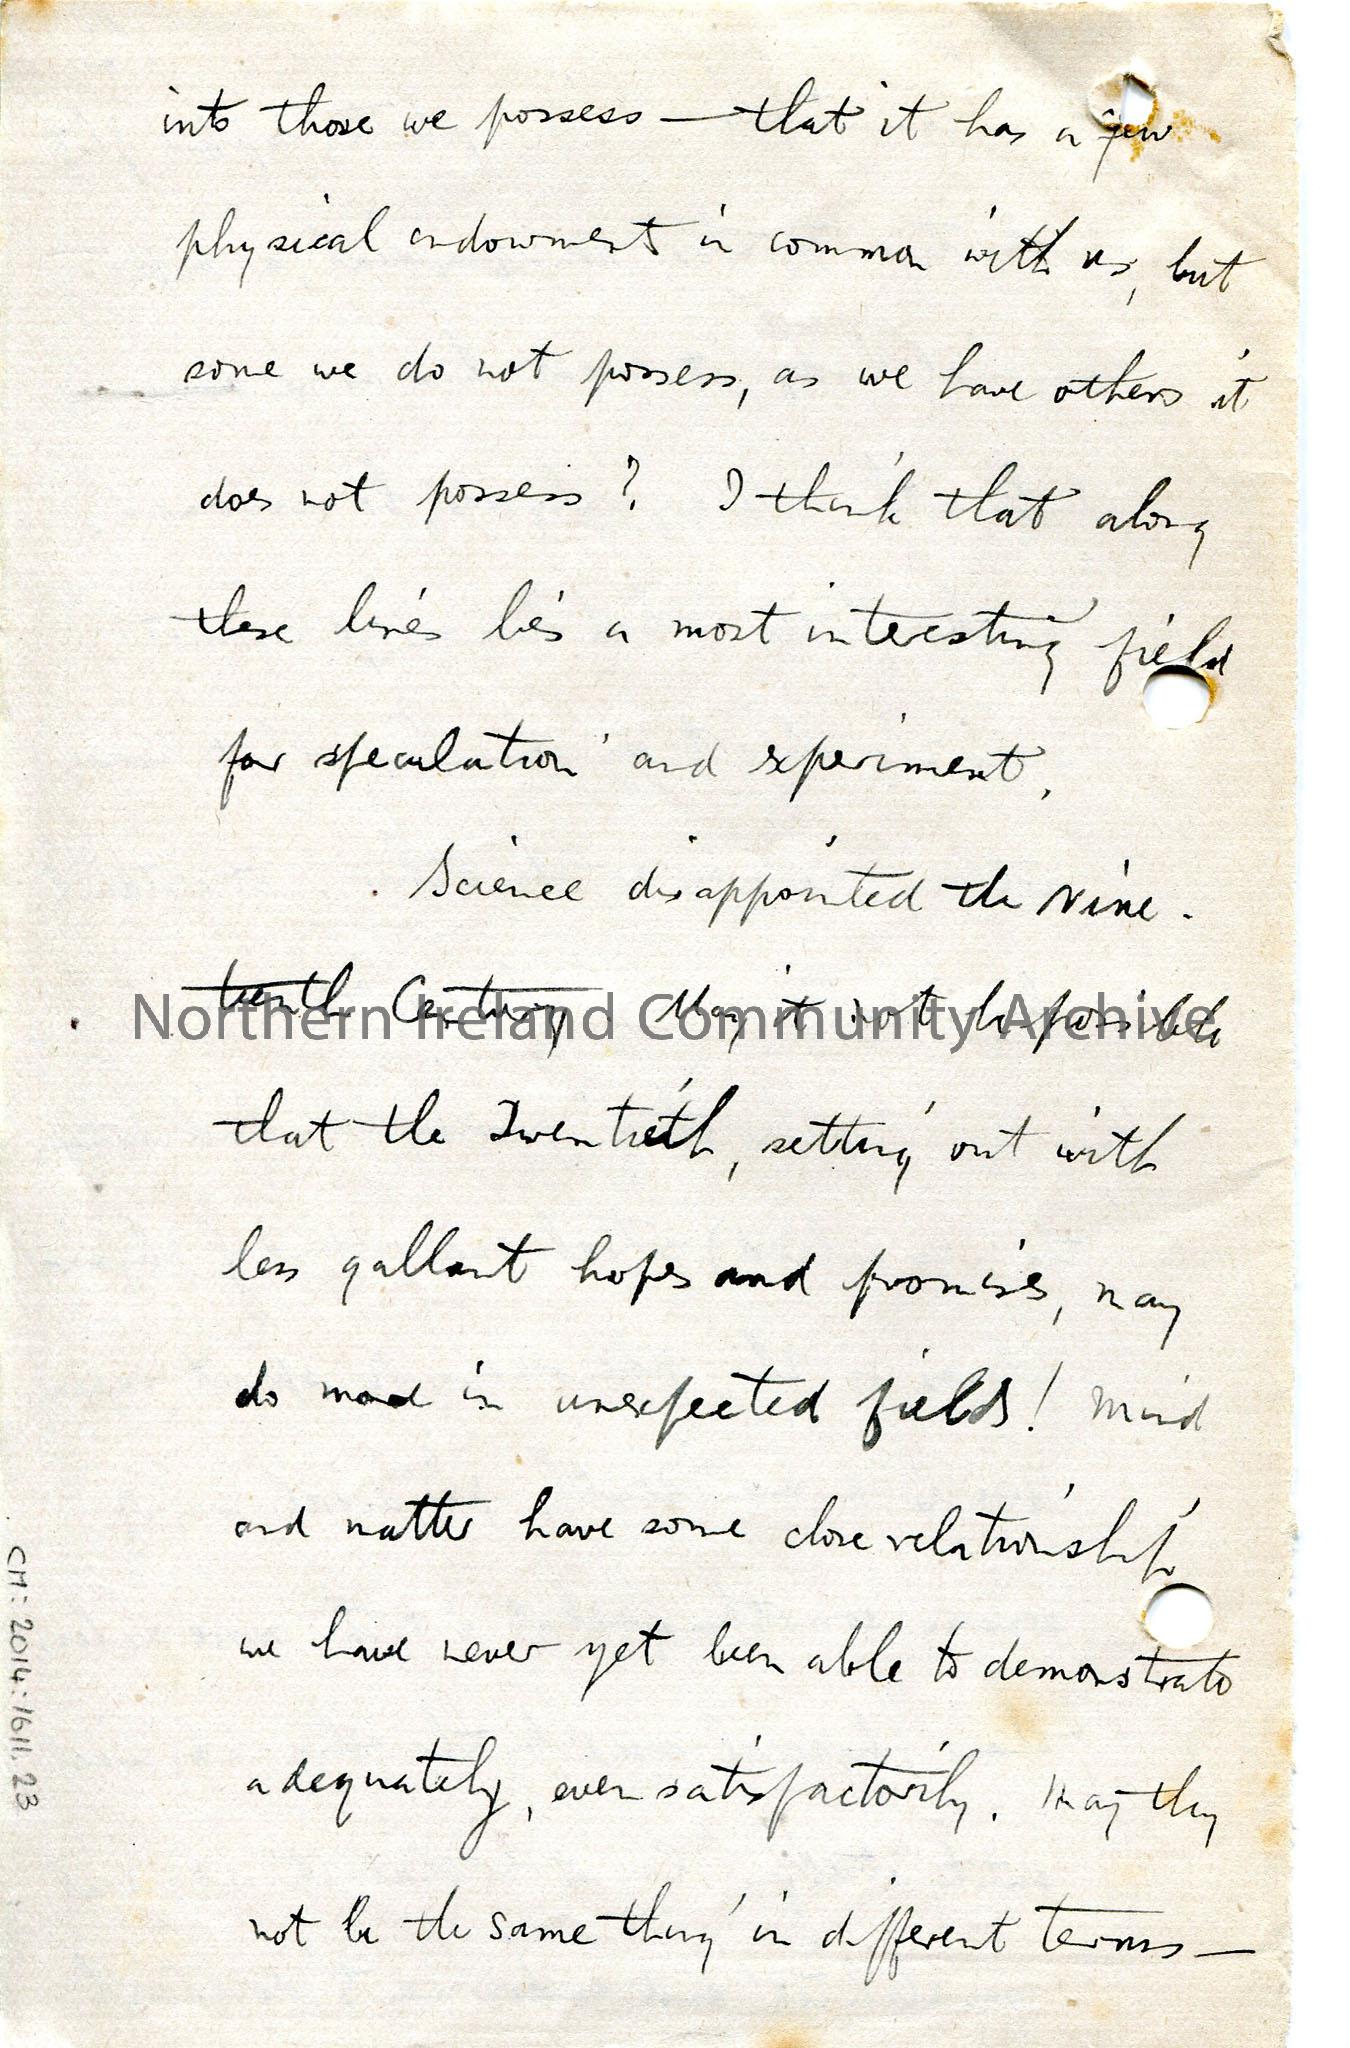 into those we possess — that it has a few
physical endowments in common with us, but
some we do not possess, as we have others it
does not possess? I think that along
these lines lies a most interesting field
for speculation and experiment.
Science disappointed the Nine-
teenth Century. May it not be possible
that the Twentieth, setting out with
less gallant hopes and promises, may
do more in unexpected fields! Mind
and matter have some close relationship
we have never yet been able to demonstrate
adequately, even satisfactorily. May they
not be the same thing in different terms —
Northern Ireland Community Archive
CM:2014:1611.23